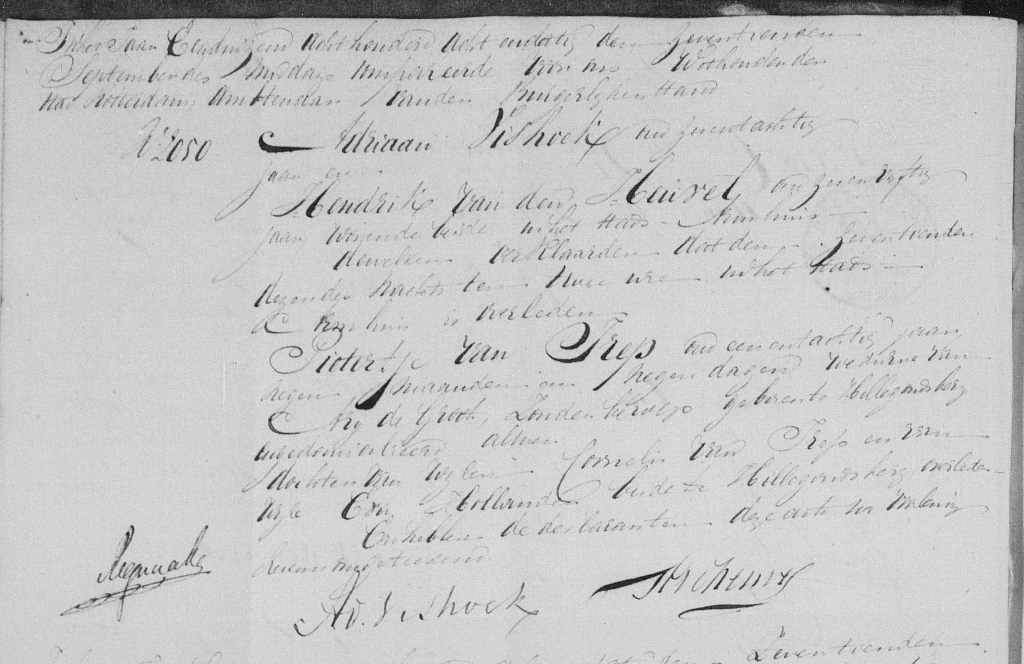 In het Jaar Eenduizend acht honderd acht en dertig den Zeventienden
September des middags compareerde voor ons Wethouder den
Stad Rotterdam, Ambtenaar van den Burgerlyken Stand
No 2050 Adriaan Vishoek oud zeven tachtig
jaar en
Hendrik van den Heuvel oud zeven vyftig
jaar wonende beide in het Stads Armhuis
dewelken verklaarden dat den Zeventienden
dezer des Nachts ten twee ure in het Stads
Armhuis is overleden
Pietertje van Trep oud een en tachtig jaar
negen maanden en negen dagen weduwe van
Ary de Groth, Zonder beroep geboren te Hillegondsberg
gedomicilieerd alhier
dochter van wylen Cornelis van Trep en van
wyle Eva Hollander beide te Hillegondsberg overleden
En hebben de declaranten deze acte na voorlezing
benevens ons getekend
Ad. Vishoek
Zeventienden